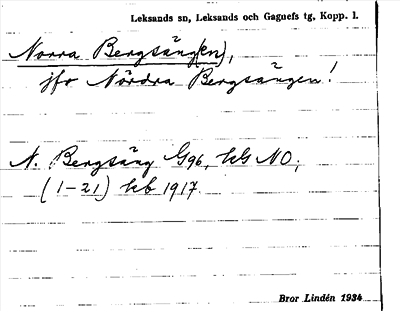 Leksands sn, Leksands och Gagnefs tg, Kopp. l.
Norra Bergsäng(en),
jfr Nördra Bergsängen!
N. Bergsäng G96, hG NO;
(1-21) kb 1917.
Bror Lindén 1934